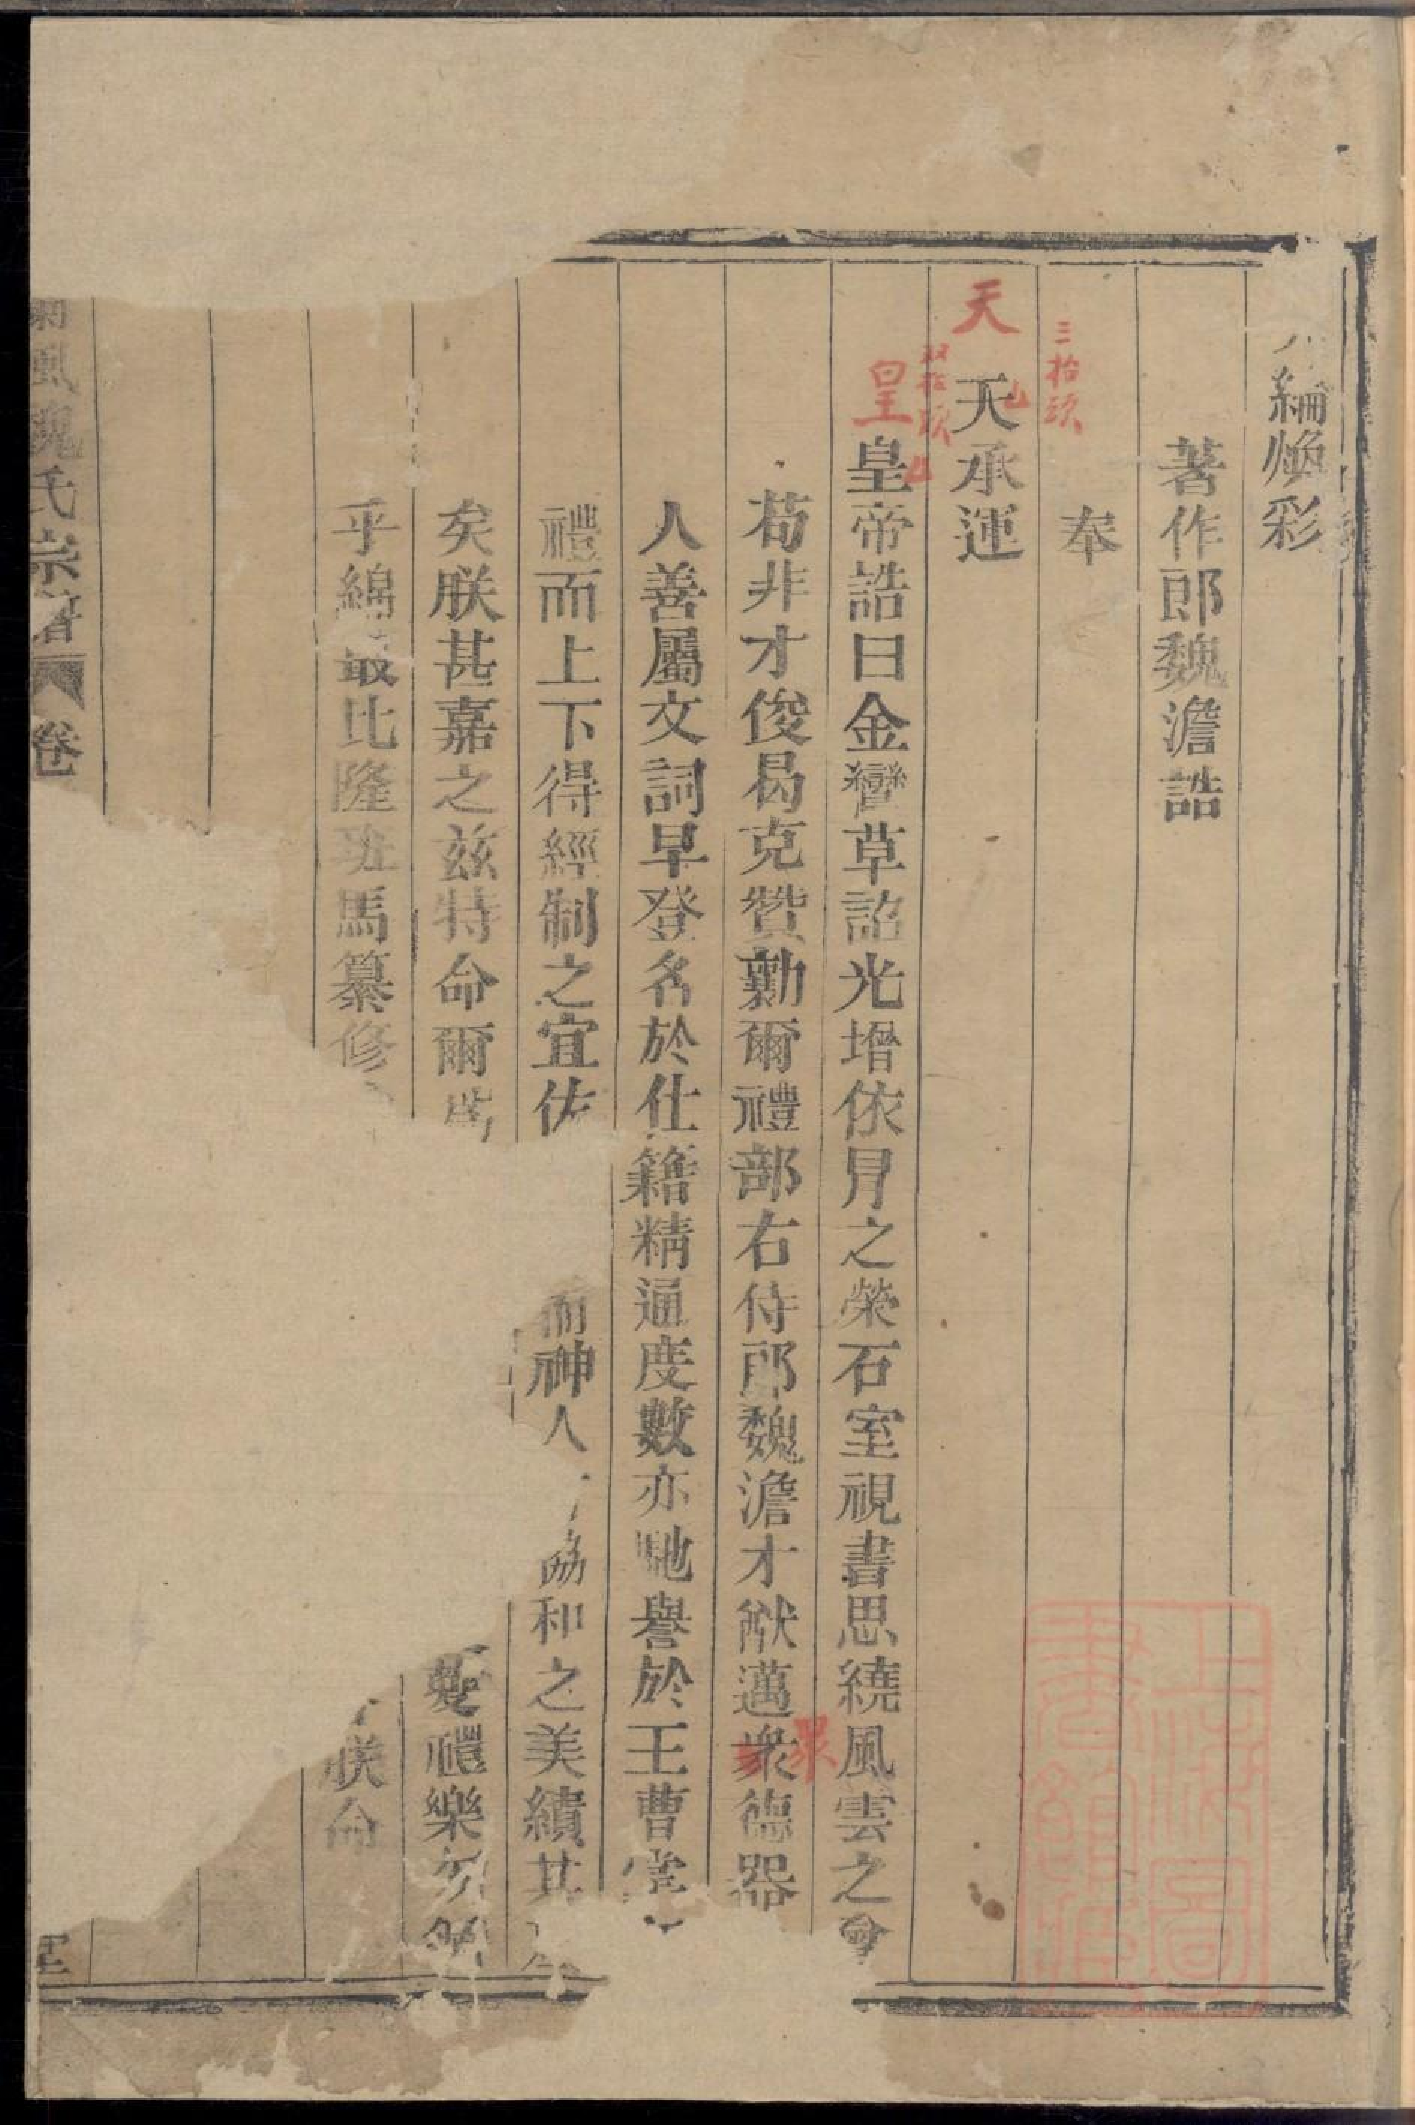 綸煥彩
著作郎魏澹誥
奉
三抬頭
天
天承運
双抬頭
皇
皇帝誥曰金鑾草詔光增依月之榮石室視書思繞風雲之會
苟非才俊曷克贊勷爾禮部右侍郎魏澹才猷邁衆德器
衆
人善屬文詞早登名於仕籍精通度數亦馳譽於王曹掌
禮而上下得經制之宜佐 而神人 協和之美績其
矣朕甚嘉之茲特命爾 夔禮樂勿
乎綿蕞比隆班馬纂修 朕命
風魏氏宗譜 卷
上海圖書館藏